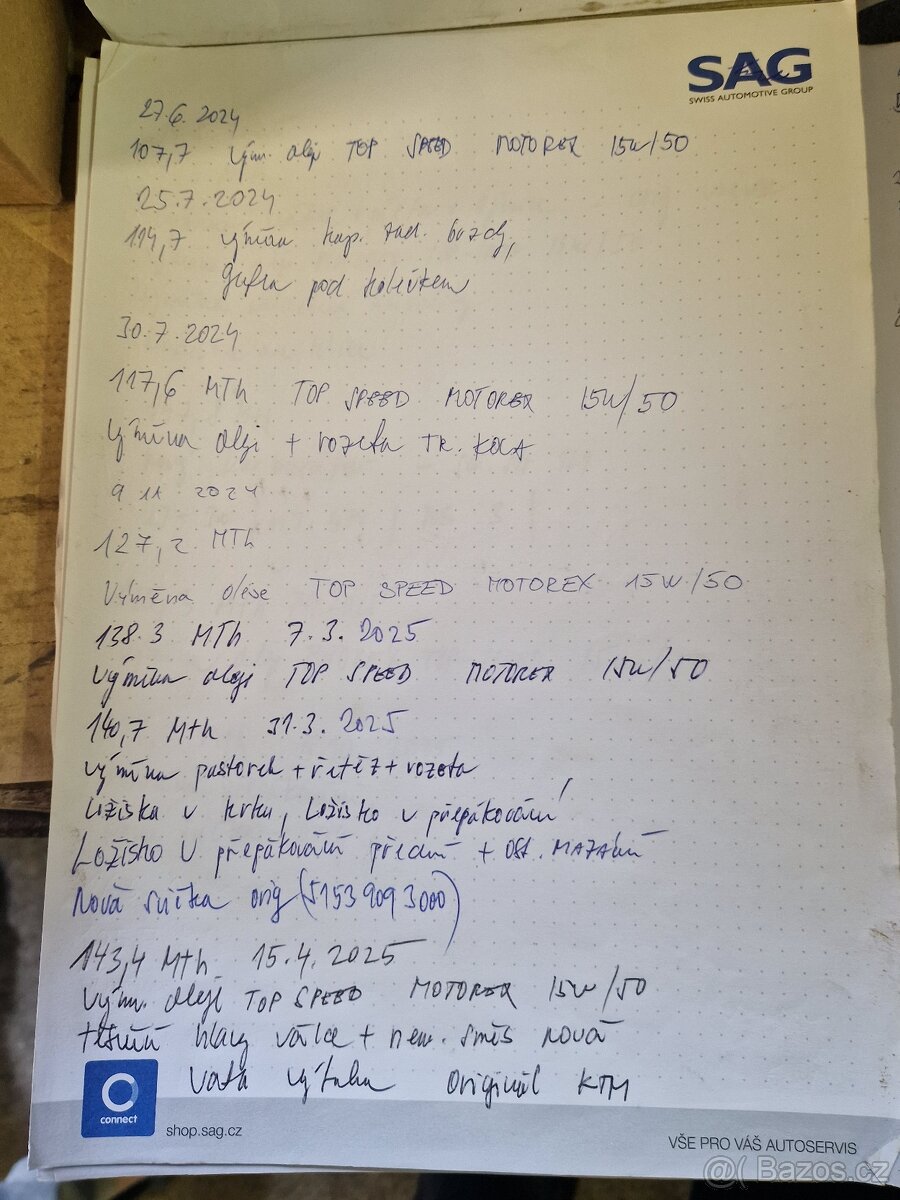 SAG
SWISS AUTOMOTIVE GROUP
27.6. 2024
107,7 vým. oleje TOP SPEED MOTOREX 15W/50
25.7.2024
114,7 výměna kap. zad. brzdy,
pod
30.7.2024
117,6 MTh TOP SPEED MOTOREX 15W/50
Výměna oleje + rozeta
9 11 2024
127,2 MTh
Výměna oleje TOP SPEED MOTOREX 15W/50
138.3 MTh 7.3.2025
Výměna oleje TOP SPEED MOTOREX 15W/50
140,7 Mth 31.3.2025
výměna pastorek + řetěz + rozeta
Ložiska v krku, Ložisko v přepákování
Ložisko v přepákování přední + ost. MAZÁNÍ
Nová svíčka orig (51539093000)
143,4 Mth 15.4.2025
Vým. oleje TOP SPEED MOTOREX 15W/50
těsnění hlavy válce + nem. směs nová
Vata výfuku Originál KTM
connect
shop.sag.cz
VŠE PRO VÁŠ AUTOSERVIS
@( Bazos.cz